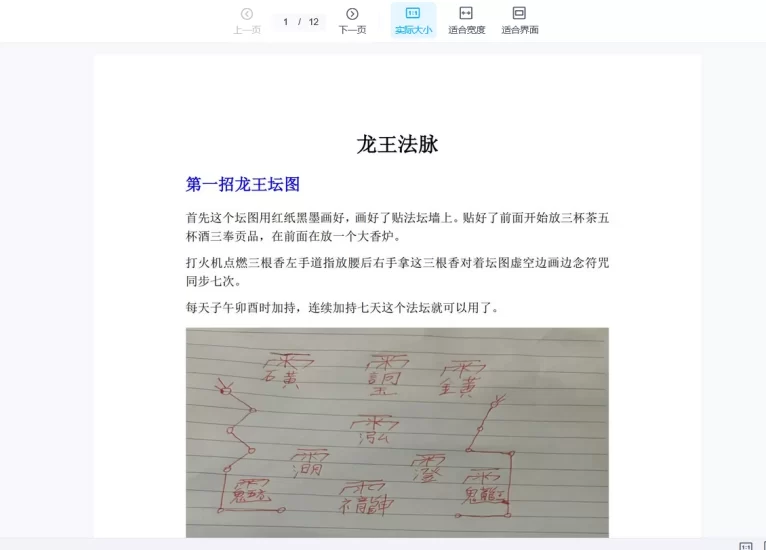 上一页
1 / 12
下一页
实际大小
适合宽度
适合界面
龙王法脉
第一招龙王坛图
首先这个坛图用红纸黑墨画好，画好了贴法坛墙上。贴好了前面开始放三杯茶五
杯酒三奉贡品，在前面在放一个大香炉。
打火机点燃三根香左手道指放腰后右手拿这三根香对着坛图虚空边画边念符咒
同步七次。
每天子午卯酉时加持，连续加持七天这个法坛就可以用了。
雨 雨 雨
石黄 金黄
雨
泓
雨 雨
澄
雨 雨 雨